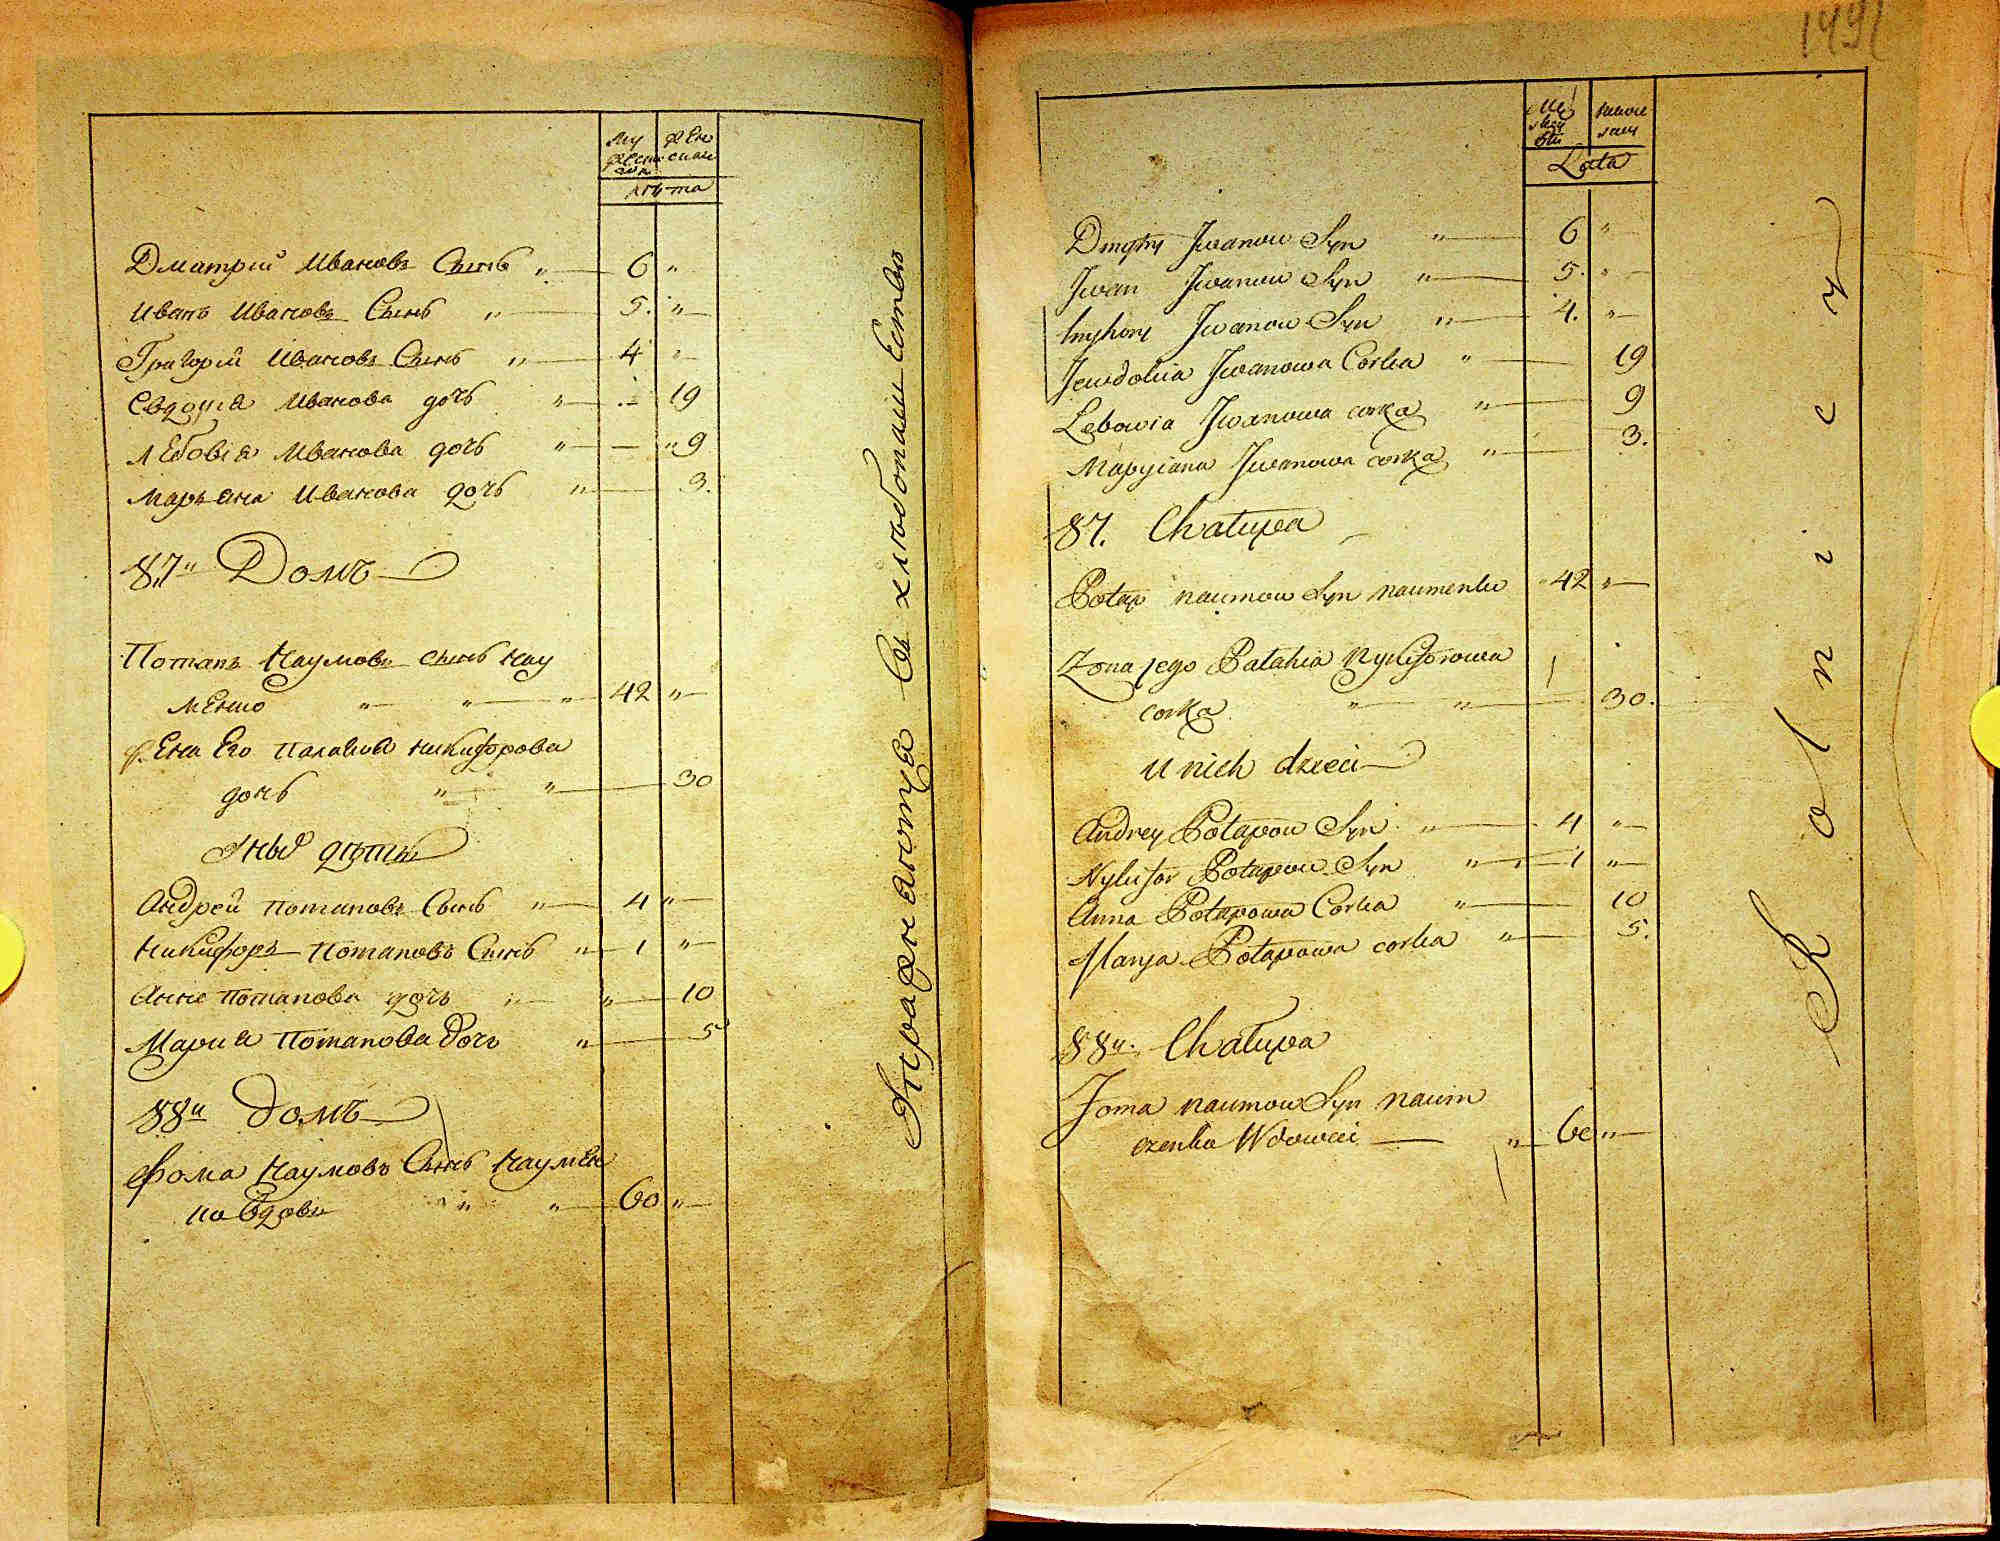 Му жеска
жен скаи
лѣта
Дматрий Ивановъ Сынъ " 6 "
Иванъ Ивановъ Сынъ " 5. "
Григорій Ивановъ Сынъ " 4 "
Евдокия Иванова дочъ " 19
Лебовия Иванова дочъ " " 9
Маръяна Иванова дочъ " 3.
87" Домъ
Потапъ Наумовъ сынъ Нау
менко " " " 42 "
жена Его Палагия Никифорова
дочъ " " 30
Андрей Потаповъ Сынъ " 4 "
Никифоръ Потаповъ Сынъ " 1 "
Анна Потапова дочъ " " 10
Мария Потапова Дочъ " 5
88" Домъ
Фома Наумовъ Сынъ Наумен
ко Вдовы " " 60 "
Упражняютца въ хлѣбопашествѣ
1491
Lata
Dmytry Jwanow Syn " 6 "
Jwan Jwanow Syn " 5. "
Hryhory Jwanow Syn " 4. "
Jewdokia Jwanowa Corka " 19
Lebowia Jwanowa corka " 9
Maryjana Jwanowa corka " 3.
87. Chatupa
Potap naumow Syn naumenko " 42 "
Zona jego Palahia Nykiforowa
corka " " 30.
u nich dzieci
Andrey Potapow Syn " 4 "
Nykifor Potapow Syn " 1 "
Anna Potapowa Corka " 10
Marya Potapowa corka " 5.
88" Chatupa
Foma naumow Syn naum
czenko Wdowiec " 60 "
Rolnicy